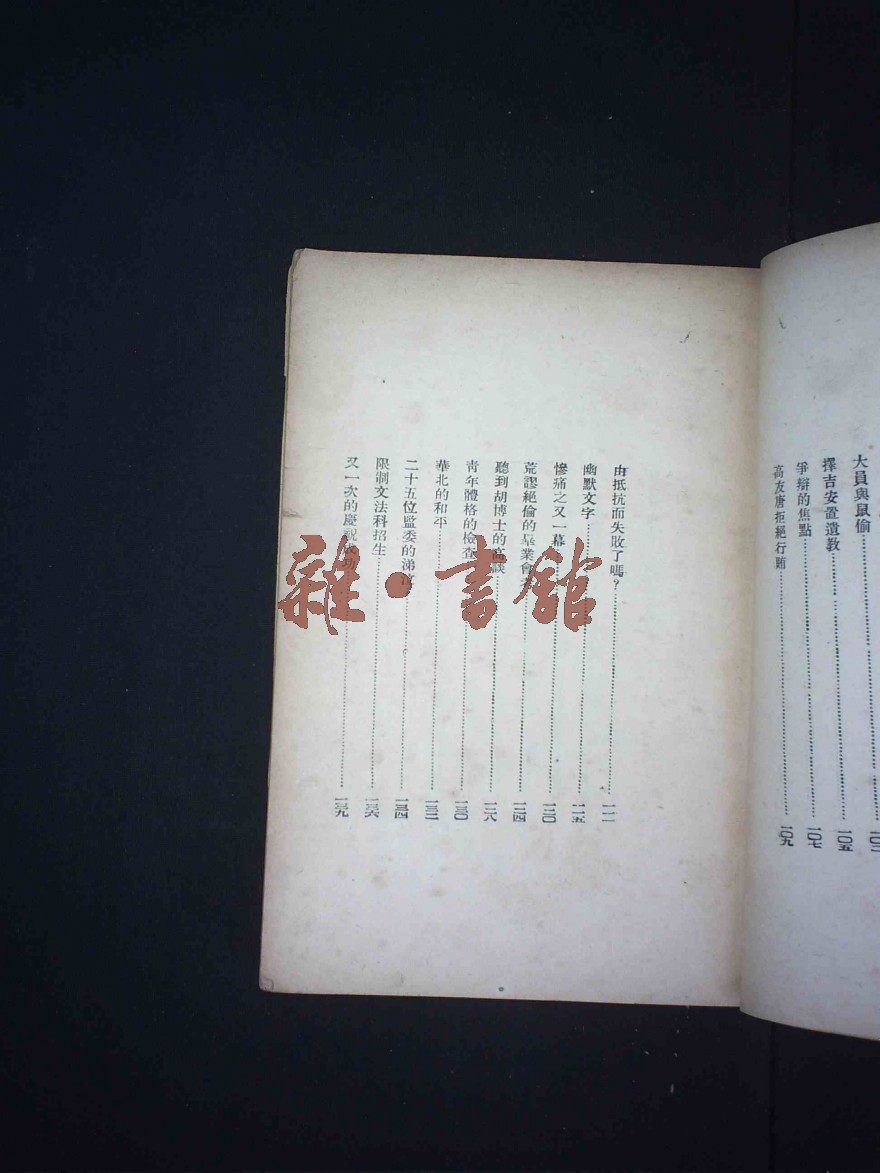 大員與鼠偷
擇吉安置遺教……一〇五
爭辯的焦點……一〇七
高友唐拒絕行賄……一〇九
由抵抗而失敗了嗎？……一一一
幽默文字……一一五
慘痛之又一幕……一二〇
荒謬絕倫的畢業會考……一二四
聽到胡博士的高談……一二八
青年體格的檢查……一三〇
華北的和平……一三二
二十五位監委的涕泣……一三四
限制文法科招生……一三六
又一次的慶祝成功……一三九
雜·書館